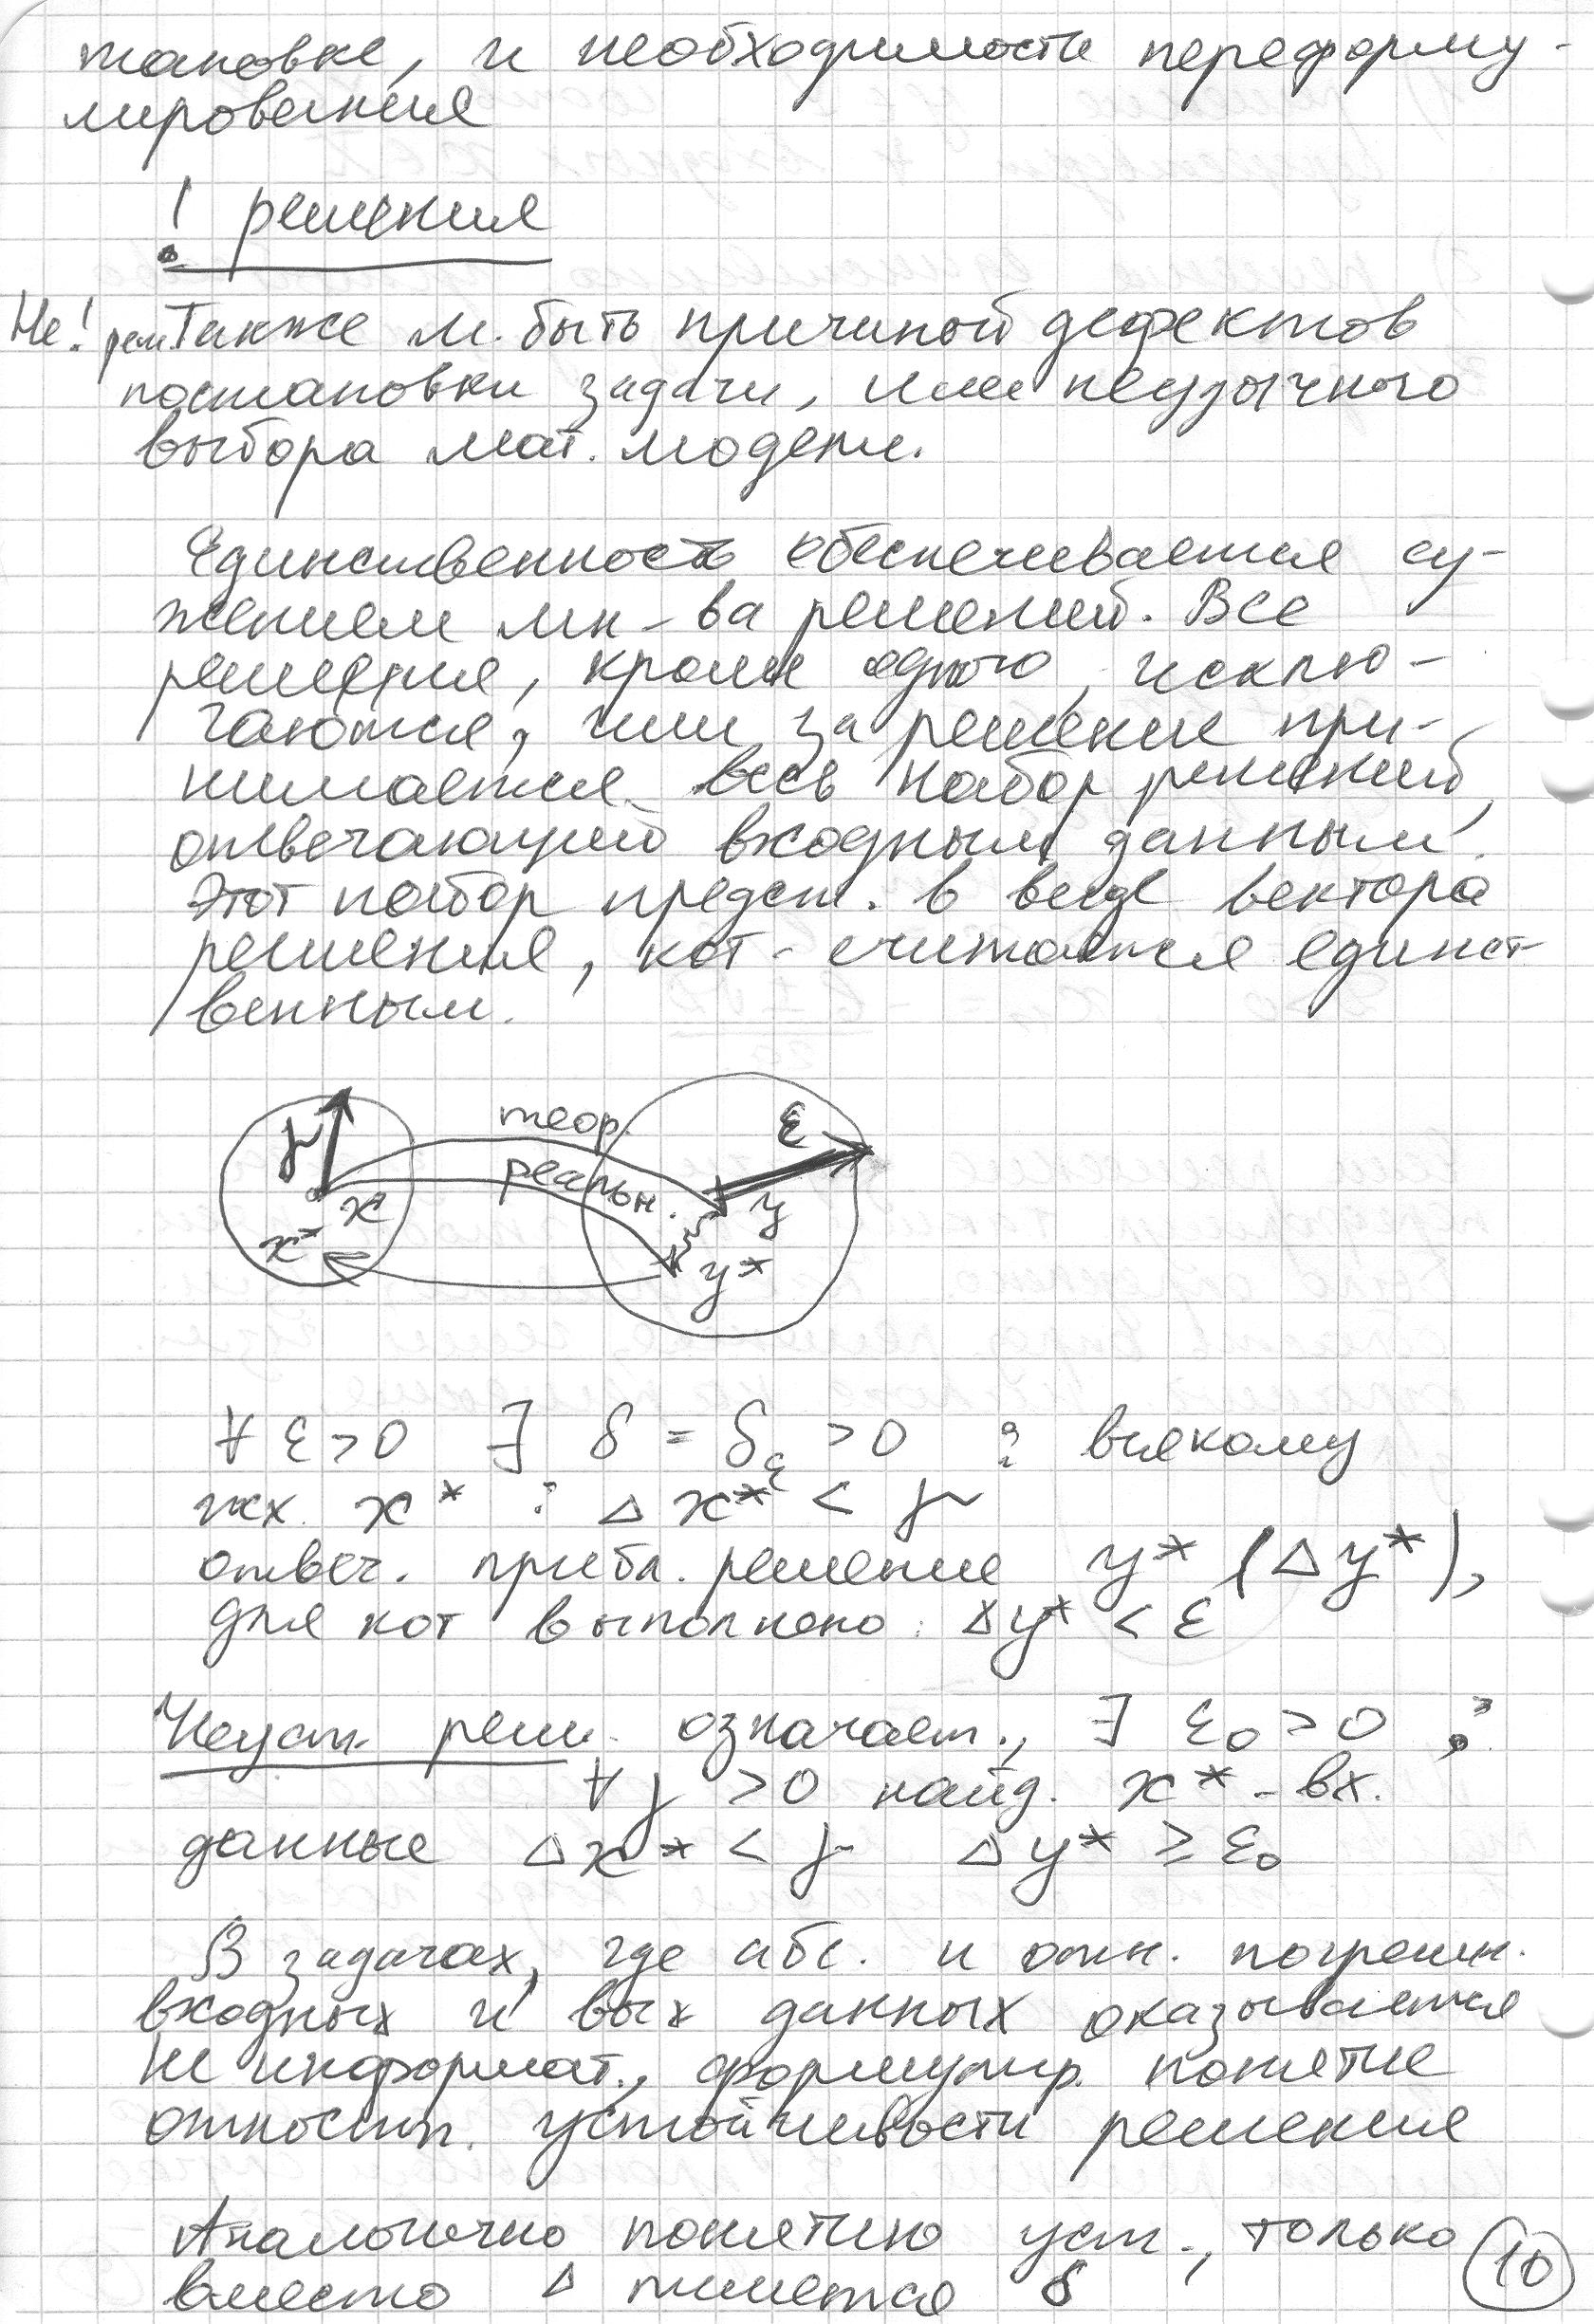 тановке, и необходимости переформу-
лирования
! решения
Не! реш. Также м. быть причиной дефектов
постановки задачи, или неудачного
выбора мат. модели.
Единственность обеспечивается су-
жением мн-ва решений. Все
решения, кроме одного, исклю-
чаются, или за решение при-
нимается весь набор решений,
отвечающий входным данным.
Этот набор предст. в виде вектора
решения, кот. считается единст-
венным.
теор.
реальн.
γ x x* ε y y*
∀ ε > 0 ∃ δ = δε > 0 : всякому
x* : Δ x* < γ
отвеч. прибл. решение y* (Δy*),
для кот выполнено: Δy* < ε
Неуст. реш. означает., ∃ ε₀ > 0 :
∀ γ > 0 найд. x* - вх.
данные Δx* < γ Δy* ≥ ε₀
В задачах, где абс. и отн. погрешн.
входных и вых данных оказывается
не информат., формулир. понятие
относит. устойчивости решения
Аналогично понятию уст., только
вместо Δ пишется δ
10